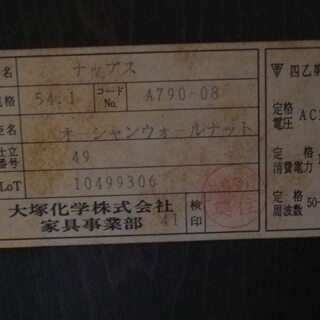 名 ナップス
規格 54.1 コードNo. A790-08
名 オーシャンウォールナット
仕立番号 49
LoT 10499306
大塚化学株式会社
家具事業部 41
検印
四乙第
定格電圧 AC
定格消費電力
定格周波数 50-